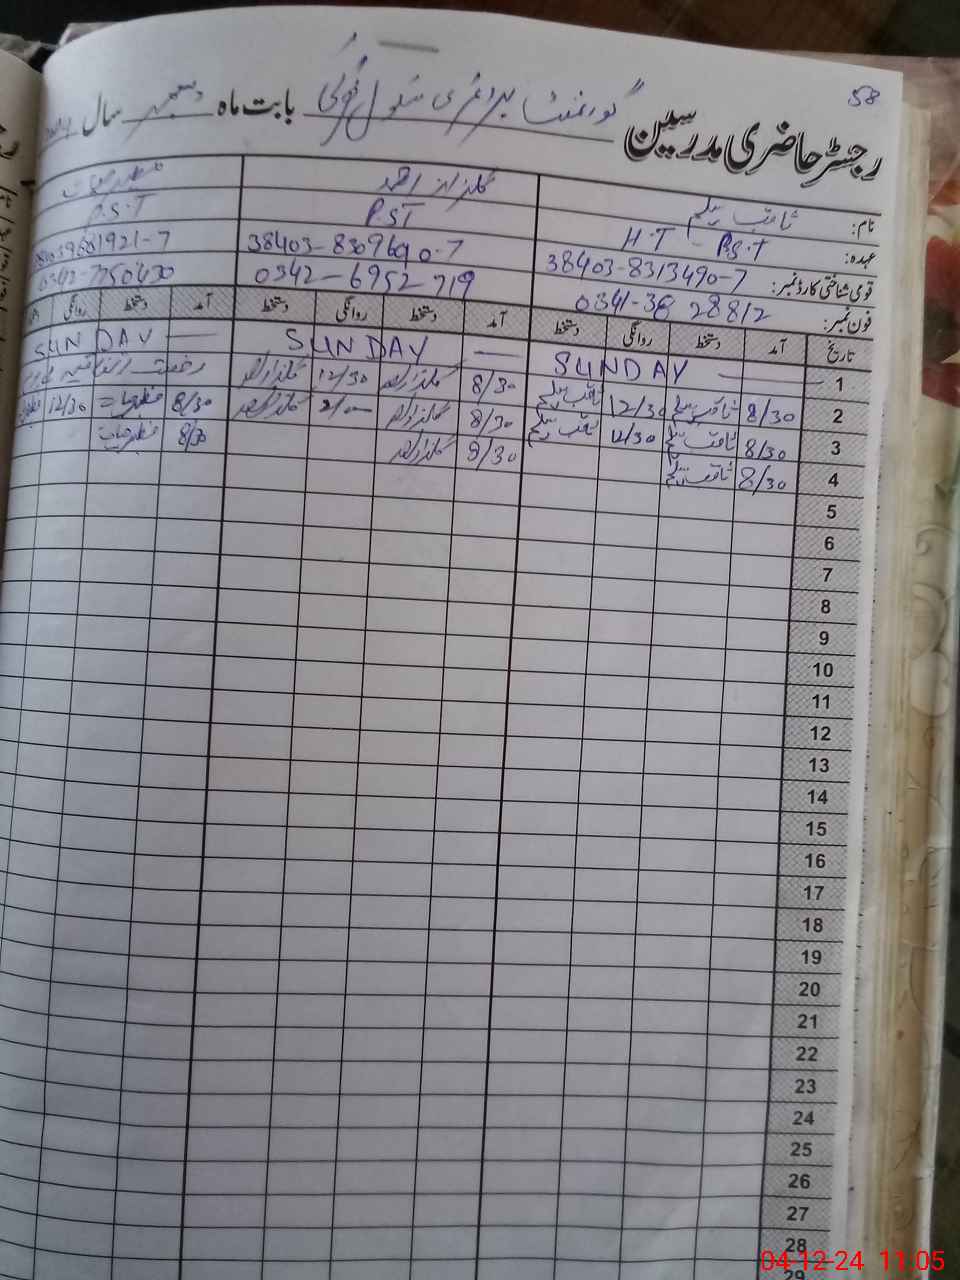 58
رجسٹر حاضری مدرسین گورنمنٹ پرائمری سکول بابت ماہ دسمبر سال
نام: ثاقب سلیم گلزار احمد
عہدہ: H.T - P.S.T P.ST P.S.T
قومی شناختی کارڈ نمبر: 38403-8313490-7 38403-8309690-7
فون نمبر: 0341-3628812 0342-6952719
تاریخ آمد دستخط روانگی دستخط آمد دستخط روانگی دستخط آمد دستخط روانگی
1 SUNDAY SUNDAY SUNDAY
2 8/30 ثاقب سلیم 12/30 ثاقب سلیم 8/30 گلزار احمد 12/30 گلزار احمد رخصت
3 8/30 ثاقب سلیم 12/30 ثاقب سلیم 8/30 گلزار احمد 2/00 گلزار احمد 8/30 12/30
4 8/30 ثاقب سلیم 8/30 گلزار احمد 8/30
5
6
7
8
9
10
11
12
13
14
15
16
17
18
19
20
21
22
23
24
25
26
27
28
29
04-12-24 11:05